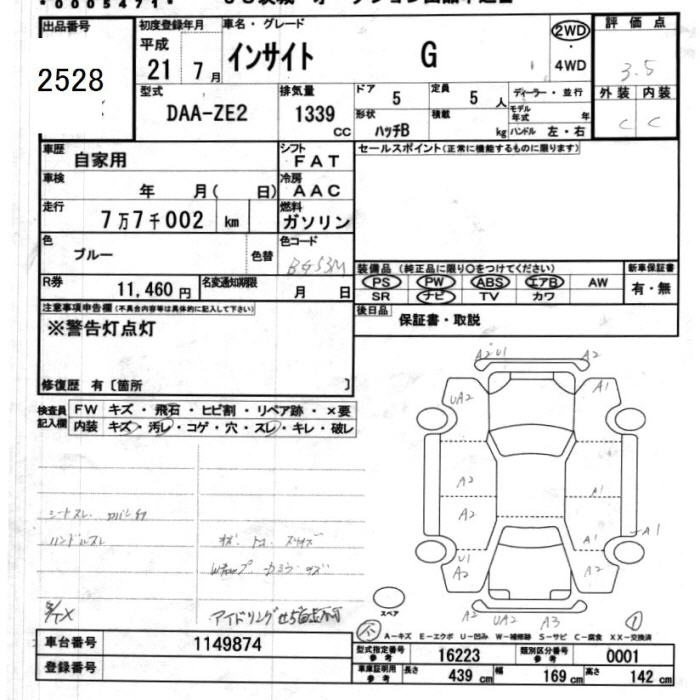 *0005471*
出品番号
2528
初度登録年月
平成
21 7月
車名・グレード
インサイト G
2WD
4WD
評価点
3.5
外装 内装
C C
型式
DAA-ZE2
排気量
1339 CC
ドア 5
定員 5 人
ディーラー・並行
形状 ハッチB
積載 kg
モデル年式 年
ハンドル 左・右
車歴 自家用
シフト FAT
セールスポイント(正常に機能するものに限ります)
車検 年 月( 日)
冷房 AAC
走行 7万7千002 km
燃料 ガソリン
色 ブルー 色替
色コード B-553M
R券 11,460 円
名変通知期限 月 日
装備品 (純正品に限り○をつけてください)
新車保証書
PS PW ABS エアB AW
有・無
SR ナビ TV カワ
後日品 保証書・取説
注意事項申告欄(不具合内容等は具体的に記入して下さい)
※警告灯点灯
修復歴 有〔箇所 〕
検査員記入欄
FW キズ・飛石・ヒビ割・リペア跡・×要
内装 キズ・汚レ・コゲ・穴・スレ・キレ・破レ
A2 U1 A2
UA2 A1
A2 A1
A2
A1 A1
U1
A2 A2
A2 UA2 A3
シートスレ
ハンドルスレ
スペア
A-キズ E-エクボ U-凹み W-補修跡 S-サビ C-腐食 XX-交換済
車台番号 1149874
登録番号
型式指定番号 参考 16223
類別区分番号 参考 0001
車庫証明用 参考 長さ 439 cm 幅 169 cm 高さ 142 cm